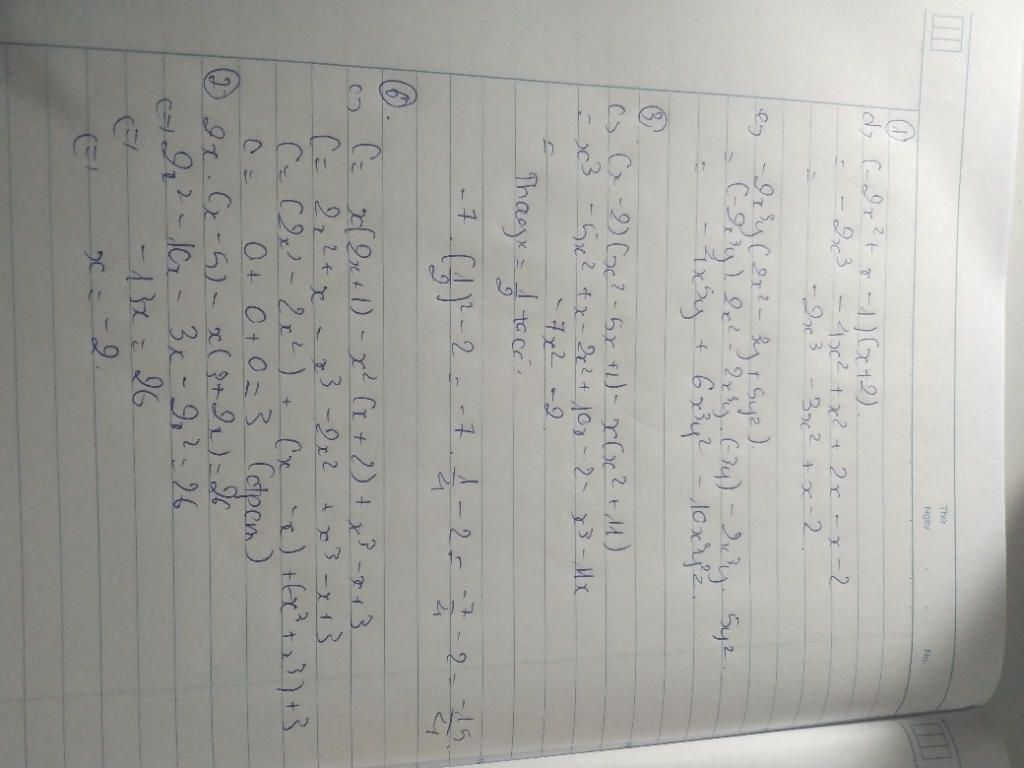 Thứ
Ngày
No.
①
d, (-2x² + x - 1)(x + 2).
= -2x³ - 4x² + x² + 2x - x - 2
= -2x³ - 3x² + x - 2.
e, -2x³y(2x² - 3y + 5yz).
= (-2x³y) 2x² - 2x³y. (-3y) - 2x³y. 5yz.
= -4x⁵y + 6x³y² - 10x³y²z.
③
c, (x - 2)(x² - 5x + 1) - x(x² + 11)
= x³ - 5x² + x - 2x² + 10x - 2 - x³ - 11x
= -7x² - 2
Thay x = 1/2 ta có:
-7. (1/2)² - 2 = -7. 1/4 - 2 = -7/4 - 2 = -15/4.
⑥.
c, C = x(2x + 1) - x²(x + 2) + x³ - x + 3
C = 2x² + x - x³ - 2x² + x³ - x + 3
C = (2x² - 2x²) + (x - x) + (x³ + x³) + 3
C = 0 + 0 + 0 = 3 (đpcm)
② 2x. (x - 5) - x(3 + 2x) = 26
<=> 2x² - 10x - 3x - 2x² = 26
<=> -13x = 26
<=> x = -2.